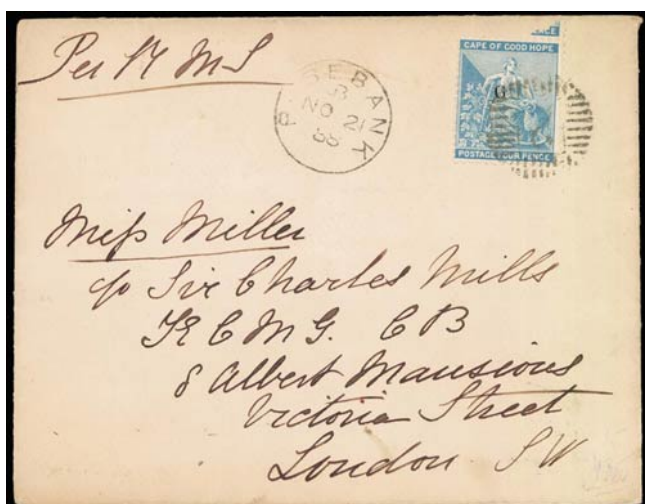 Per R M S
ROSEBANK
B
NO 21
88
CE
CAPE OF GOOD HOPE
G
POSTAGE FOUR PENCE
Miss Miller
c/o Sir Charles Mills
K C M G. C B
8 Albert Mansions
Victoria Street
London S W